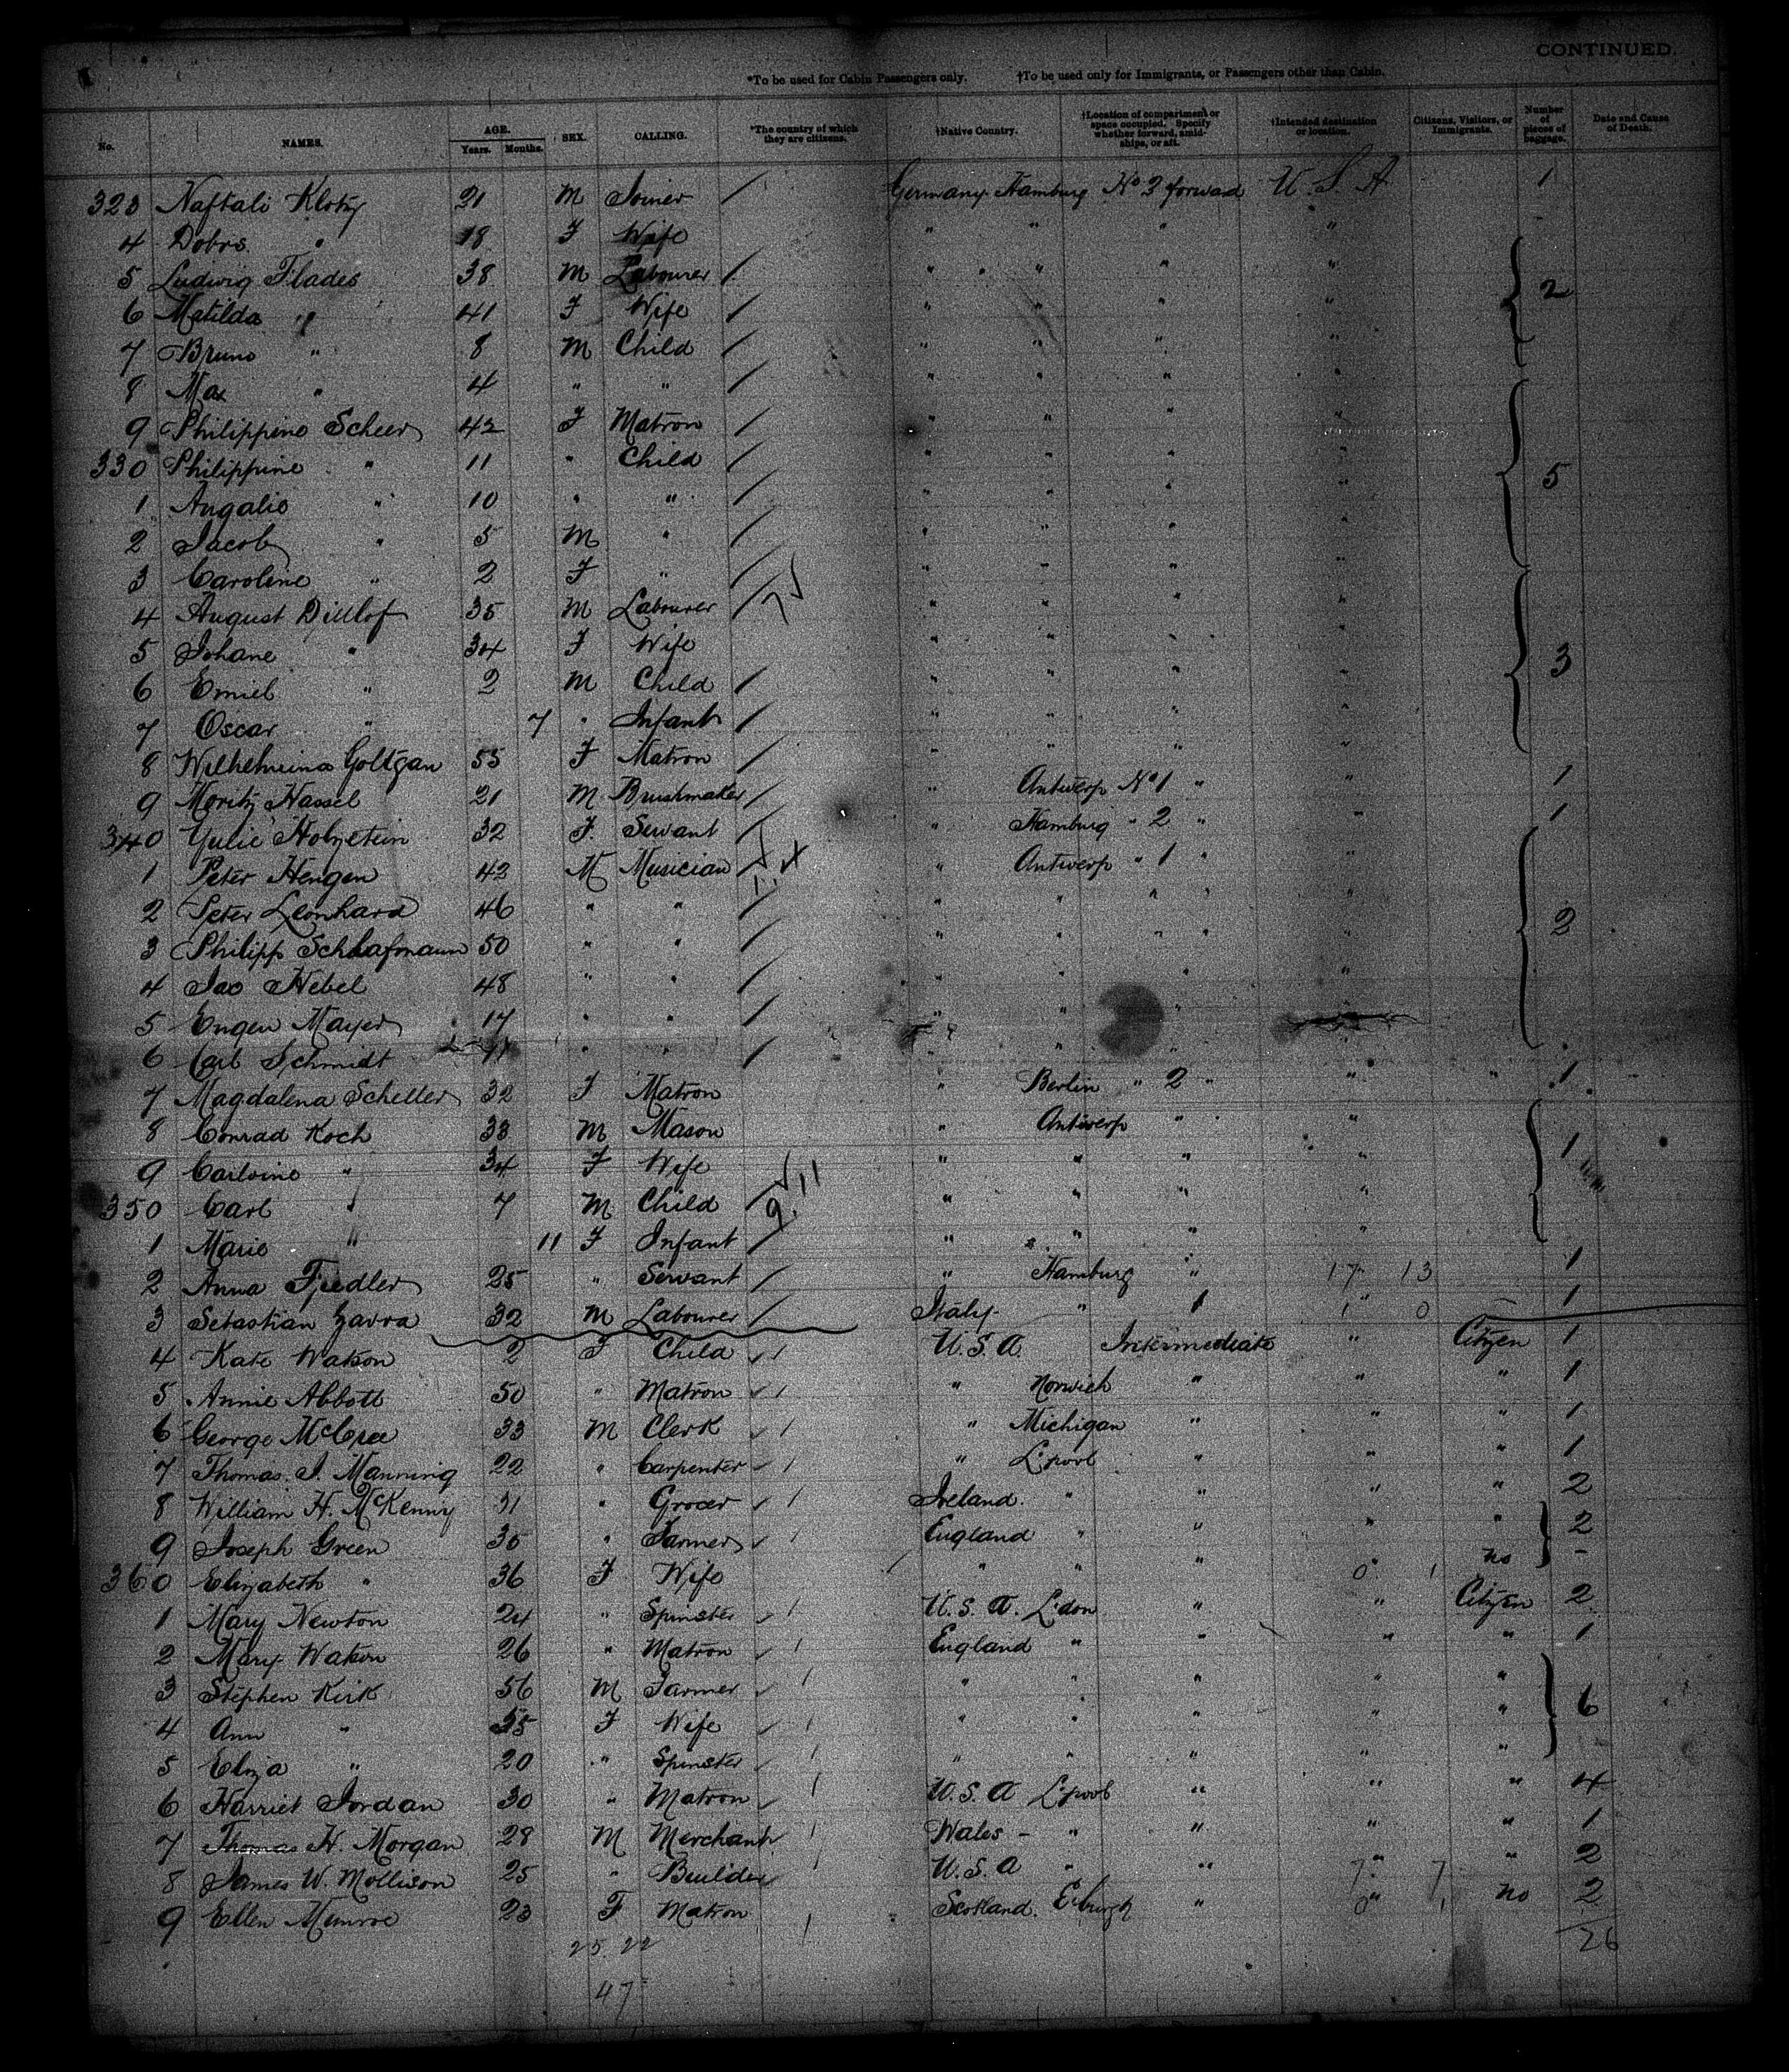 CONTINUED.
*To be used for Cabin Passengers only. †To be used only for Immigrants, or Passengers other than Cabin.
No. NAMES. AGE. Years. Months. SEX. CALLING. *The country of which they are citizens. †Native Country. †Location of compartment or space occupied. Specify whether forward, amidships, or aft. †Intended destination or location. Citizens, Visitors, or Immigrants. Number of pieces of baggage. Date and Cause of Death.
323 Naftali Klotz 21 M Joiner / Germany Hamburg No 2 forward U. S. A 1
4 Dobrs " 18 F Wife " " " "
5 Ludwig Flades 38 M Labourer / " " " " 2
6 Matilda " 41 F Wife / " " " "
7 Bruno " 8 M Child / " " " "
8 Max " 4 " " / " " " "
9 Philippine Scheer 42 F Matron / " " " " 5
330 Philippine " 11 " Child / " " " "
1 Augalie " 10 " " / " " " "
2 Jacob " 5 M " / " " " "
3 Caroline " 2 F " / " " " "
4 August Dilllof 35 M Labourer / " " " " 3
5 Johane " 34 F Wife " " " "
6 Emiel " 2 M Child / " " " "
7 Oscar " 7 " Infant / " " " "
8 Wilhelmina Goltzan 55 F Matron / " " " "
9 Moritz Hassel 21 M Brushmaker / " Antwerp No 1 " " 1
340 Yulie Holzstein 32 F. Servant / " Hamburg " 2 " " 1
1 Peter Hengen 42 M Musician / " Antwerp " 1 " " 2
2 Peter Leonhard 46 " " / " " " " "
3 Philipp Schlafmann 50 " " / " " " " "
4 Jac Hebel 48 " " / " " " "
5 Eugen Mayer 17 " " / " " "
6 Carl Schmidt " " / " " "
7 Magdalena Scheller 32 F Matron " Berlin " 2 " " " 1
8 Conrad Koch 33 M Mason " Antwerp " " 1
9 Carloine " 34 F Wife " " " "
350 Carl " 7 M Child / " " " "
1 Marie " 11 F Infant / " " " "
2 Anna Fiedler 25 " Servant / " Hamburg " 17 13 1
3 Sebastian Zavra 32 M Labourer / Italy " 1 " 1 0 1
4 Kate Watson 2 F Child U. S. A. Intermediate " Citizen 1
5 Annie Abbott 50 " Matron " Norwich " " " 1
6 George McCrea 33 M Clerk " Michigan " " " 1
7 Thomas. J. Manning 22 " Carpenter " L'pool " " " 1
8 William H. McKenny 31 " Grocer Ireland. " " " " 2
9 Joseph Green 35 " Farmer England " " " " 2
360 Elizabeth " 36 F Wife " " " 0 1 no -
1 Mary Newton 24 " Spinster U. S. A. L'don " " Citizen 2
2 Mary Watson 26 " Matron England " " " " 1
3 Stephen Kirk 56 M Farmer " " " " " 6
4 Ann " 55 F Wife " " " " "
5 Eliza " 20 " Spinster " " " " "
6 Harriet Jordan 30 " Matron U. S. A L'pool " " " 4
7 Thomas H. Morgan 28 M Merchant Wales - " " " " 1
8 James W. Mollison 25 " Builder U. S. A " " 7 7 " 2
9 Ellen Munroe 23 F Matron Scotland. E'burgh " 0 1 no 2
25. 22 26
47